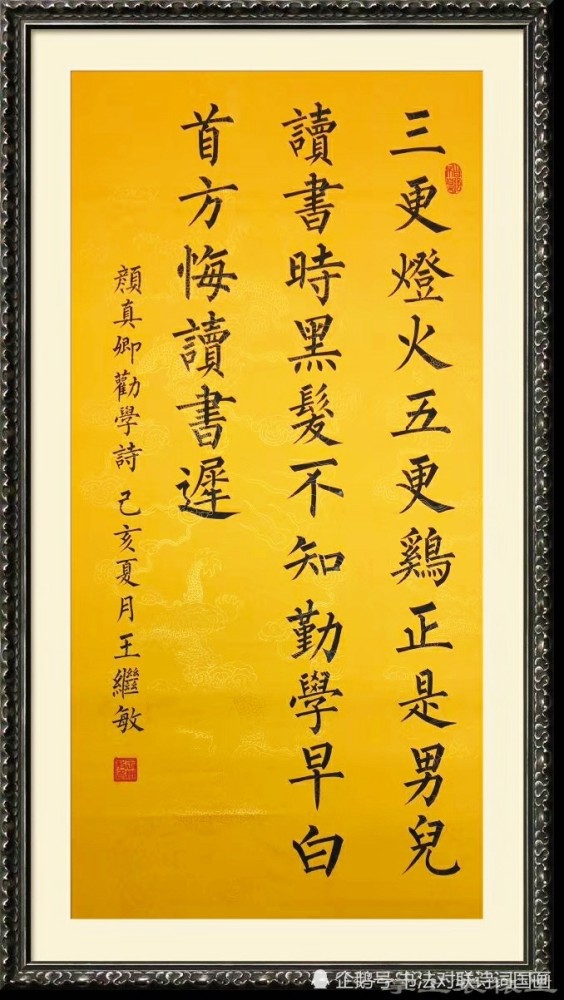 三更燈火五更鷄正是男兒
讀書時黑髮不知勤學早白
首方悔讀書遲
顏真卿勸學詩己亥夏月王繼敏
企鹅号 书法对联诗词国画